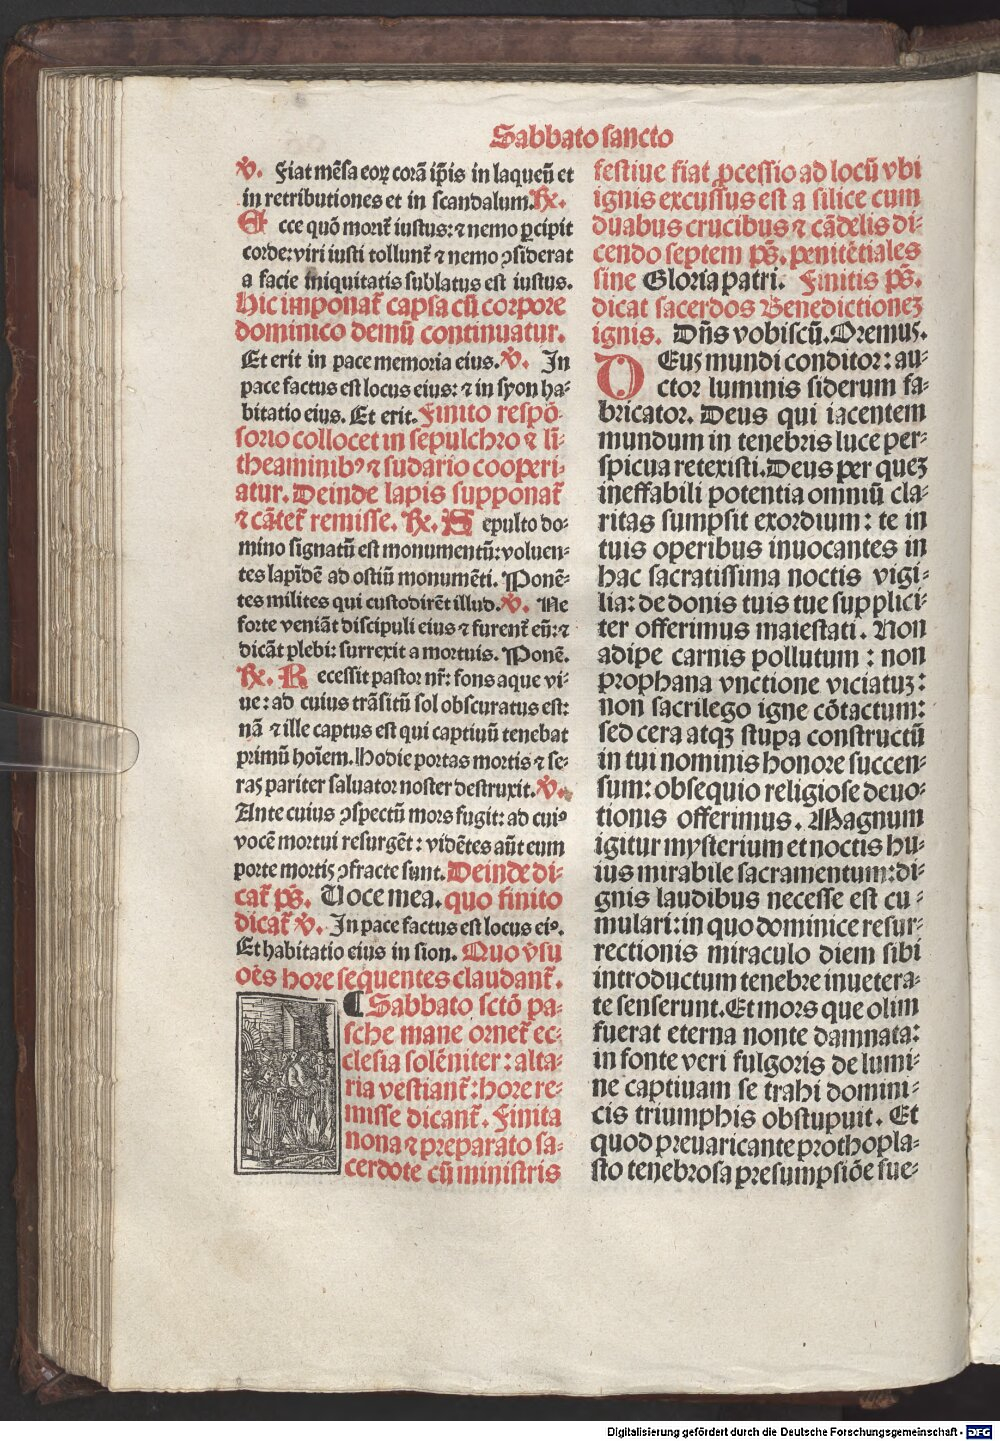 Sabbato sancto
℣. Fiat mēsa eoꝝ corā ip̄is in laqueū et
in retributiones et in scandalum. ℟.
Ecce quō morit᷑ iustus: ⁊ nemo ꝑcipit
corde: viri iusti tollunt᷑ ⁊ nemo ꝯsiderat
a facie iniquitatis sublatus est iustus.
Hic imponat᷑ capsa cū corpore
dominico demū continuatur.
Et erit in pace memoria eius. ℣. In
pace factus est locus eius: ⁊ in syon ha⸗
bitatio eius. Et erit. Finito respō⸗
sorio collocet in sepulchro ⁊ li⸗
theaminibꝰ ⁊ sudario cooperi⸗
atur. Deinde lapis supponat᷑
⁊ cātet᷑ remisse. ℟. Sepulto do⸗
mino signatū est monumentū: voluen⸗
tes lapidē ad ostiū monumēti. Ponē⸗
tes milites qui custodirēt illud. ℣. Ne
forte veniāt discipuli eius ⁊ furent᷑ eū: ⁊
dicāt plebi: surrexit a mortuis. Ponē.
℟. Recessit pastor nr̄: fons aque vi⸗
ue: ad cuius trāsitū sol obscuratus est:
nā ⁊ ille captus est qui captiuū tenebat
primū hoīem. Hodie portas mortis ⁊ se⸗
ras pariter saluator noster destruxit. ℣.
Ante cuius ꝯspectū mors fugit: ad cuiꝰ
vocē mortui resurgēt: vidētes aūt eum
porte mortis ꝯfracte sunt. Deinde di⸗
cat᷑ ps̄. Voce mea. quo finito
dicat᷑ ℣. In pace factus est locus eiꝰ.
Et habitatio eius in sion. Quo v̄su
oēs hore sequentes claudant᷑.
¶ Sabbato sctō pa⸗
sche mane ornet᷑ ec⸗
clesia solēniter: alta⸗
ria vestiant᷑: hore re⸗
misse dicant᷑. Finita
nona ⁊ preparato sa⸗
cerdote cū ministris
festiue fiat ꝓcessio ad locū vbi
ignis excussus est a silice cum
duabus crucibus ⁊ cādelis di⸗
cendo septem ps̄. penitētiales
sine Gloria patri. Finitis ps̄.
dicat sacerdos Benedictionez
ignis. Dn̄s vobiscū. Oremus.
DEus mundi conditor: au⸗
ctor luminis siderum fa⸗
bricator. Deus qui iacentem
mundum in tenebris luce per⸗
spicua retexisti. Deus per quez
ineffabili potentia omniū cla⸗
ritas sumpsit exordium: te in
tuis operibus inuocantes in
hac sacratissima noctis vigi⸗
lia: de donis tuis tue supplici⸗
ter offerimus maiestati. Non
adipe carnis pollutum: non
prophana vnctione viciatuz:
non sacrilego igne cōtactum:
sed cera atqꝫ stupa constructū
in tui nominis honore succen⸗
sum: obsequio religiose deuo⸗
tionis offerimus. Magnum
igitur mysterium et noctis hu⸗
ius mirabile sacramentum: di⸗
gnis laudibus necesse est cu⸗
mulari: in quo dominice resur⸗
rectionis miraculo diem sibi
introductum tenebre inuetera⸗
te senserunt. Et mors que olim
fuerat eterna nocte damnata:
in fonte veri fulgoris de lumi⸗
ne captiuam se trahi domini⸗
cis triumphis obstupuit. Et
quod preuaricante prothopla⸗
sto tenebrosa presumpsiōe fue⸗
Digitalisierung gefördert durch die Deutsche Forschungsgemeinschaft - DFG